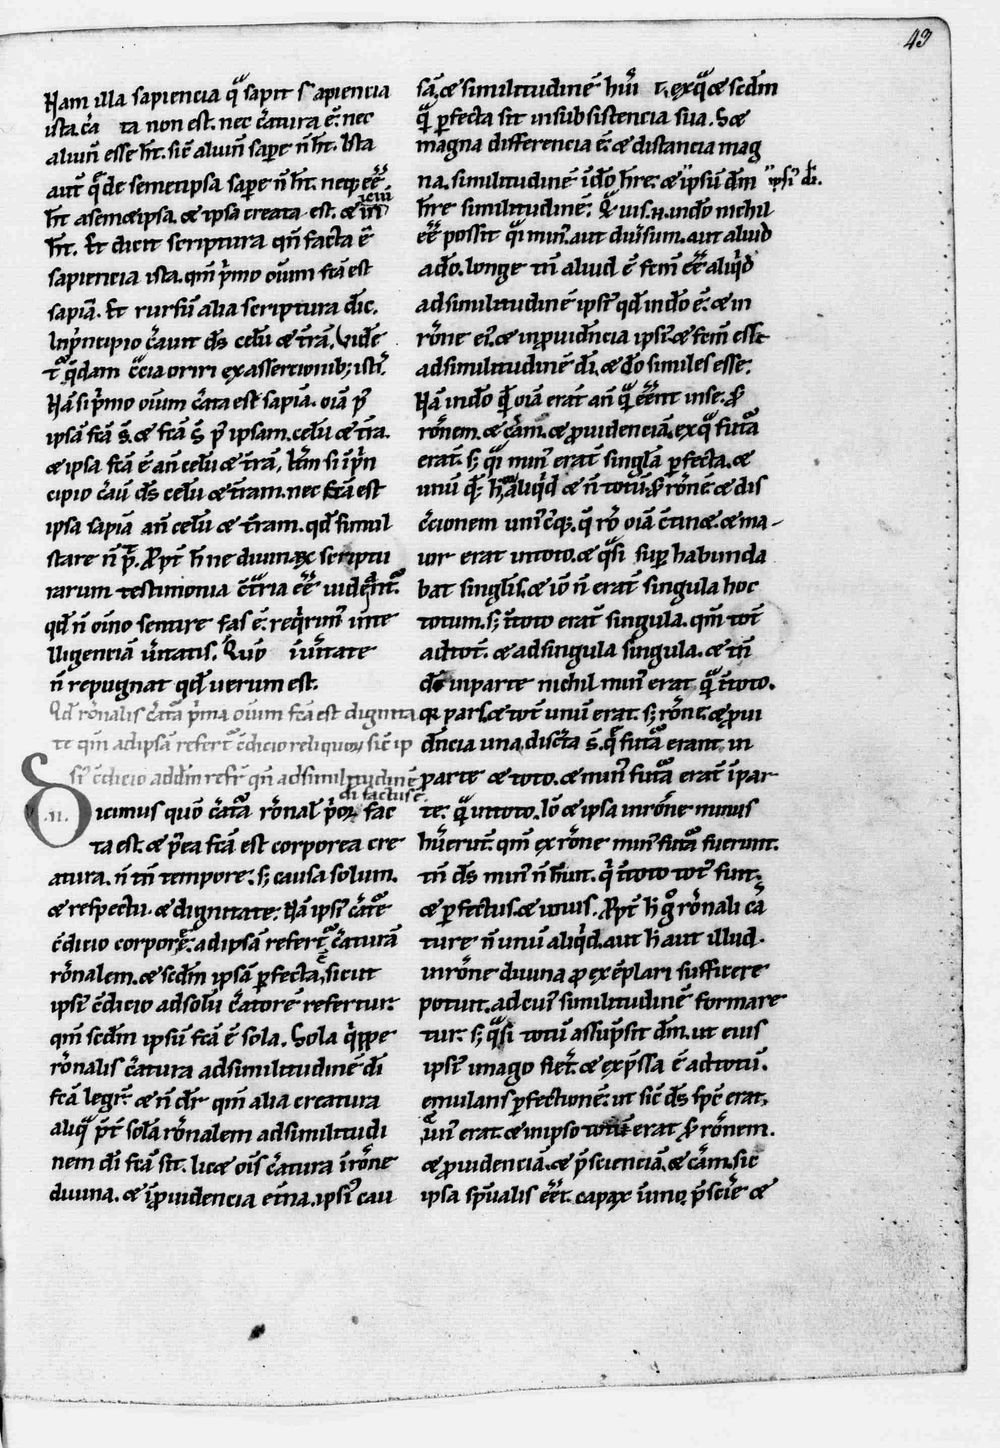 43
Nam illa sapiencia q̃ sapit sapiencia
ista. c̃a ta non est. nec c̃atura ẽ. nec
aliuñ esse h̃t. sic̃ aliuñ sap̃e ñ h̃t. Ista
aut̃ q̃ de semetipsa sap̃e ñ h̃t. neq; eẽ
h̃t a semetipsa. et ipsa creata est. et iniciũ
h̃t. Et dicit scriptura qñ facta ẽ
sapiencia ista. qm̃ p̃mo oĩum fc̃a est
sapiã. Et rursũ alia scriptura dic̃.
In p̃ncipio c̃auit ds̃ celũ et t̃rã. Vidẽ
t͛ q̃dam c̃c̃ia oriri ex assertionib; ist̃.
Nã si p̃mo oĩum c̃ata est sapiã. oĩa p̃
ipsã fc̃a s̃. et fc̃a s̃ p̃ ipsam. celũ et t̃ra.
et ipsa fc̃a ẽ añ celũ et t̃rã. Itẽm si ĩ p̃n
cipio c̃auĩ ds̃ celũ et t̃ram. nec fc̃a est
ipsa sapiã añ celũ et t̃ram. qd̃ simul
stare ñ p̃t. P̃pt̃ h̃ ne diuinaꝝ scriptu
rarum testimonia c̃t̃ria eẽ uideant͛.
qd̃ ñ oĩno sentire fas ẽ. req̃rim͛ inte
lligenciã ũitatis. Quõ ĩ ũitate
ñ repugnat qd̃ uerum est.
Qd̃ rõnalis c̃atã p̃ma oĩum fc̃a est dignita
te qm̃ ad ipsã refert͛ c̃dicio reliquoꝝ sic̃ ip
si͛ c̃dicio ad dm̃ refr̃ qñ ad similitudinẽ
di factus ẽ.
.II. Dicimus quõ c̃atã rõnal̃ p̃oꝝ fac
ta est. et p̃ea fc̃a est corporea cre
atura. ñ tñ tempore. s; causa solum.
et respectu. et dignitate. Nã ipsi͛ c̃ate
c̃dicio corporẽ. ad ipsã refert͛ c̃aturã
rõnalem. et scd̃m ipsã perfecta ẽ, sicut
ipsi͛ c̃dicio ad solũ c̃atorẽ refertur.
qm̃ scd̃m ipsũ fc̃a ẽ sola. Sola q̃ppe
rõnalis c̃atura ad similitudinẽ di̅
fc̃a legit͛ et ñ dr̃ qm̃ alia creatura
aliq̃ p̃t̃ solã rõnalem ad similitudi
nem di̅ fc̃a sit. licet oĩs c̃atura ĩ rõne
diuina. et ĩ p̃uidencia et̃na. ipsi͛ cau
sã, et similitudinẽ hũi͛ ex q̃ et scd̃m
q̃ perfecta sit in subsistencia sua. Set
magna differencia ẽ. et distancia mag
na. similitudinẽ ĩ dõ h̃re. et ipsũ dm̃ ipsi͛ di̅.
h̃re similitudinẽ. Q̃uis .N. in dõ nichil
eẽ possit q̃i min͛. aut diũsum. aut aliud
a dõ. longe tñ aliud ẽ fc̃m eẽ aliq̃d
ad similitudinẽ ipsi͛ qd̃ in dõ ẽ. et in
rõne ei͛. et in p̃uidñcia ipsi͛ et fc̃m esse
ad similitudinẽ di̅. et dõ similes esse.
Nã in dõ q̃i oĩa erãt añ q̃ eẽnt in se. ꝓ
rõnem. et c̃am. et prouidenciã. ex q̃ futã
erant. s; q̃i min͛ erant singl̃a perfecta. et
unũ q̃; h̃t aliq̃d et ñ totũ. ꝓ rõnẽ. et dis
c̃cionem uni͛c͛q;. q̃ rõ oĩa c̃tinet. et ma-
ior erat in toto. et q̃si sup habunda
bat singl̃is. et iõ ñ erant singula hoc
totum. s; ĩ toto erant singula. qm̃ tot̃
ad tot̃. et ad singula singula. et tñ
deo in parte nichil min͛ erat q̃ ĩ toto.
q̃ pars. et tot̃ unũ erat. s; rõne. et p̃ui
dñcia una, disc̃ta s̃. q̃ futã erant in
parte et toto. et min͛ futã erant ĩ par
te. q̃ in toto. Iõ et ipsa in rõne minus
hũerunt. qm̃ ex rõne min͛ futã fuerunt.
tñ ds̃ min͛ ñ h̃uit. q̃ ĩ toto tot͛ sunt.
et perfectus. et unus. P̃pt̃ h̃ g̃ rõnali c̃a
ture ñ unũ aliq̃d. aut h̃ aut illud.
in rõne diuina pro exẽplari sufficere
potuit. ad cui͛ similitudinẽ formare
tur. s; q̃si totũ assũpsit dm̃. ut eius
ipsi͛ imago fieret. et exp̃ssa ẽ ad totũ.
emulans perfectionẽ. ut sic̃ ds̃ sp̃c erat.
un͛ erat. et in ipso totũ erat ꝓ rõnem.
et prouidenciã. et p̃scienciã. et c̃am. sic
ipsa sp̃ualis eẽt. capax ĩ uno p̃scĩe et